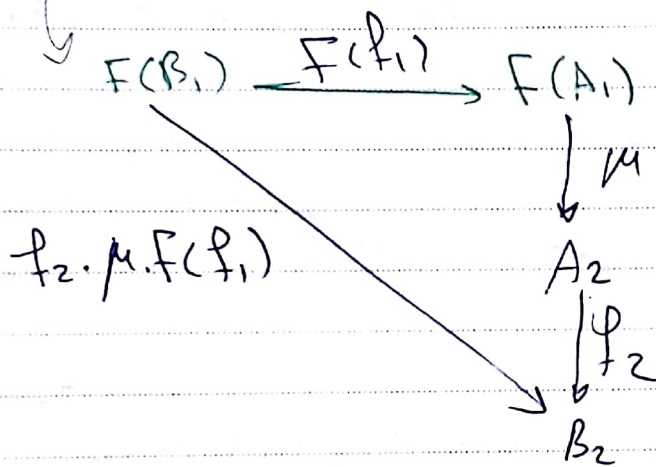 F(B₁) F(f₁) F(A₁)
μ
f₂.μ.F(f₁) A₂
f₂
B₂